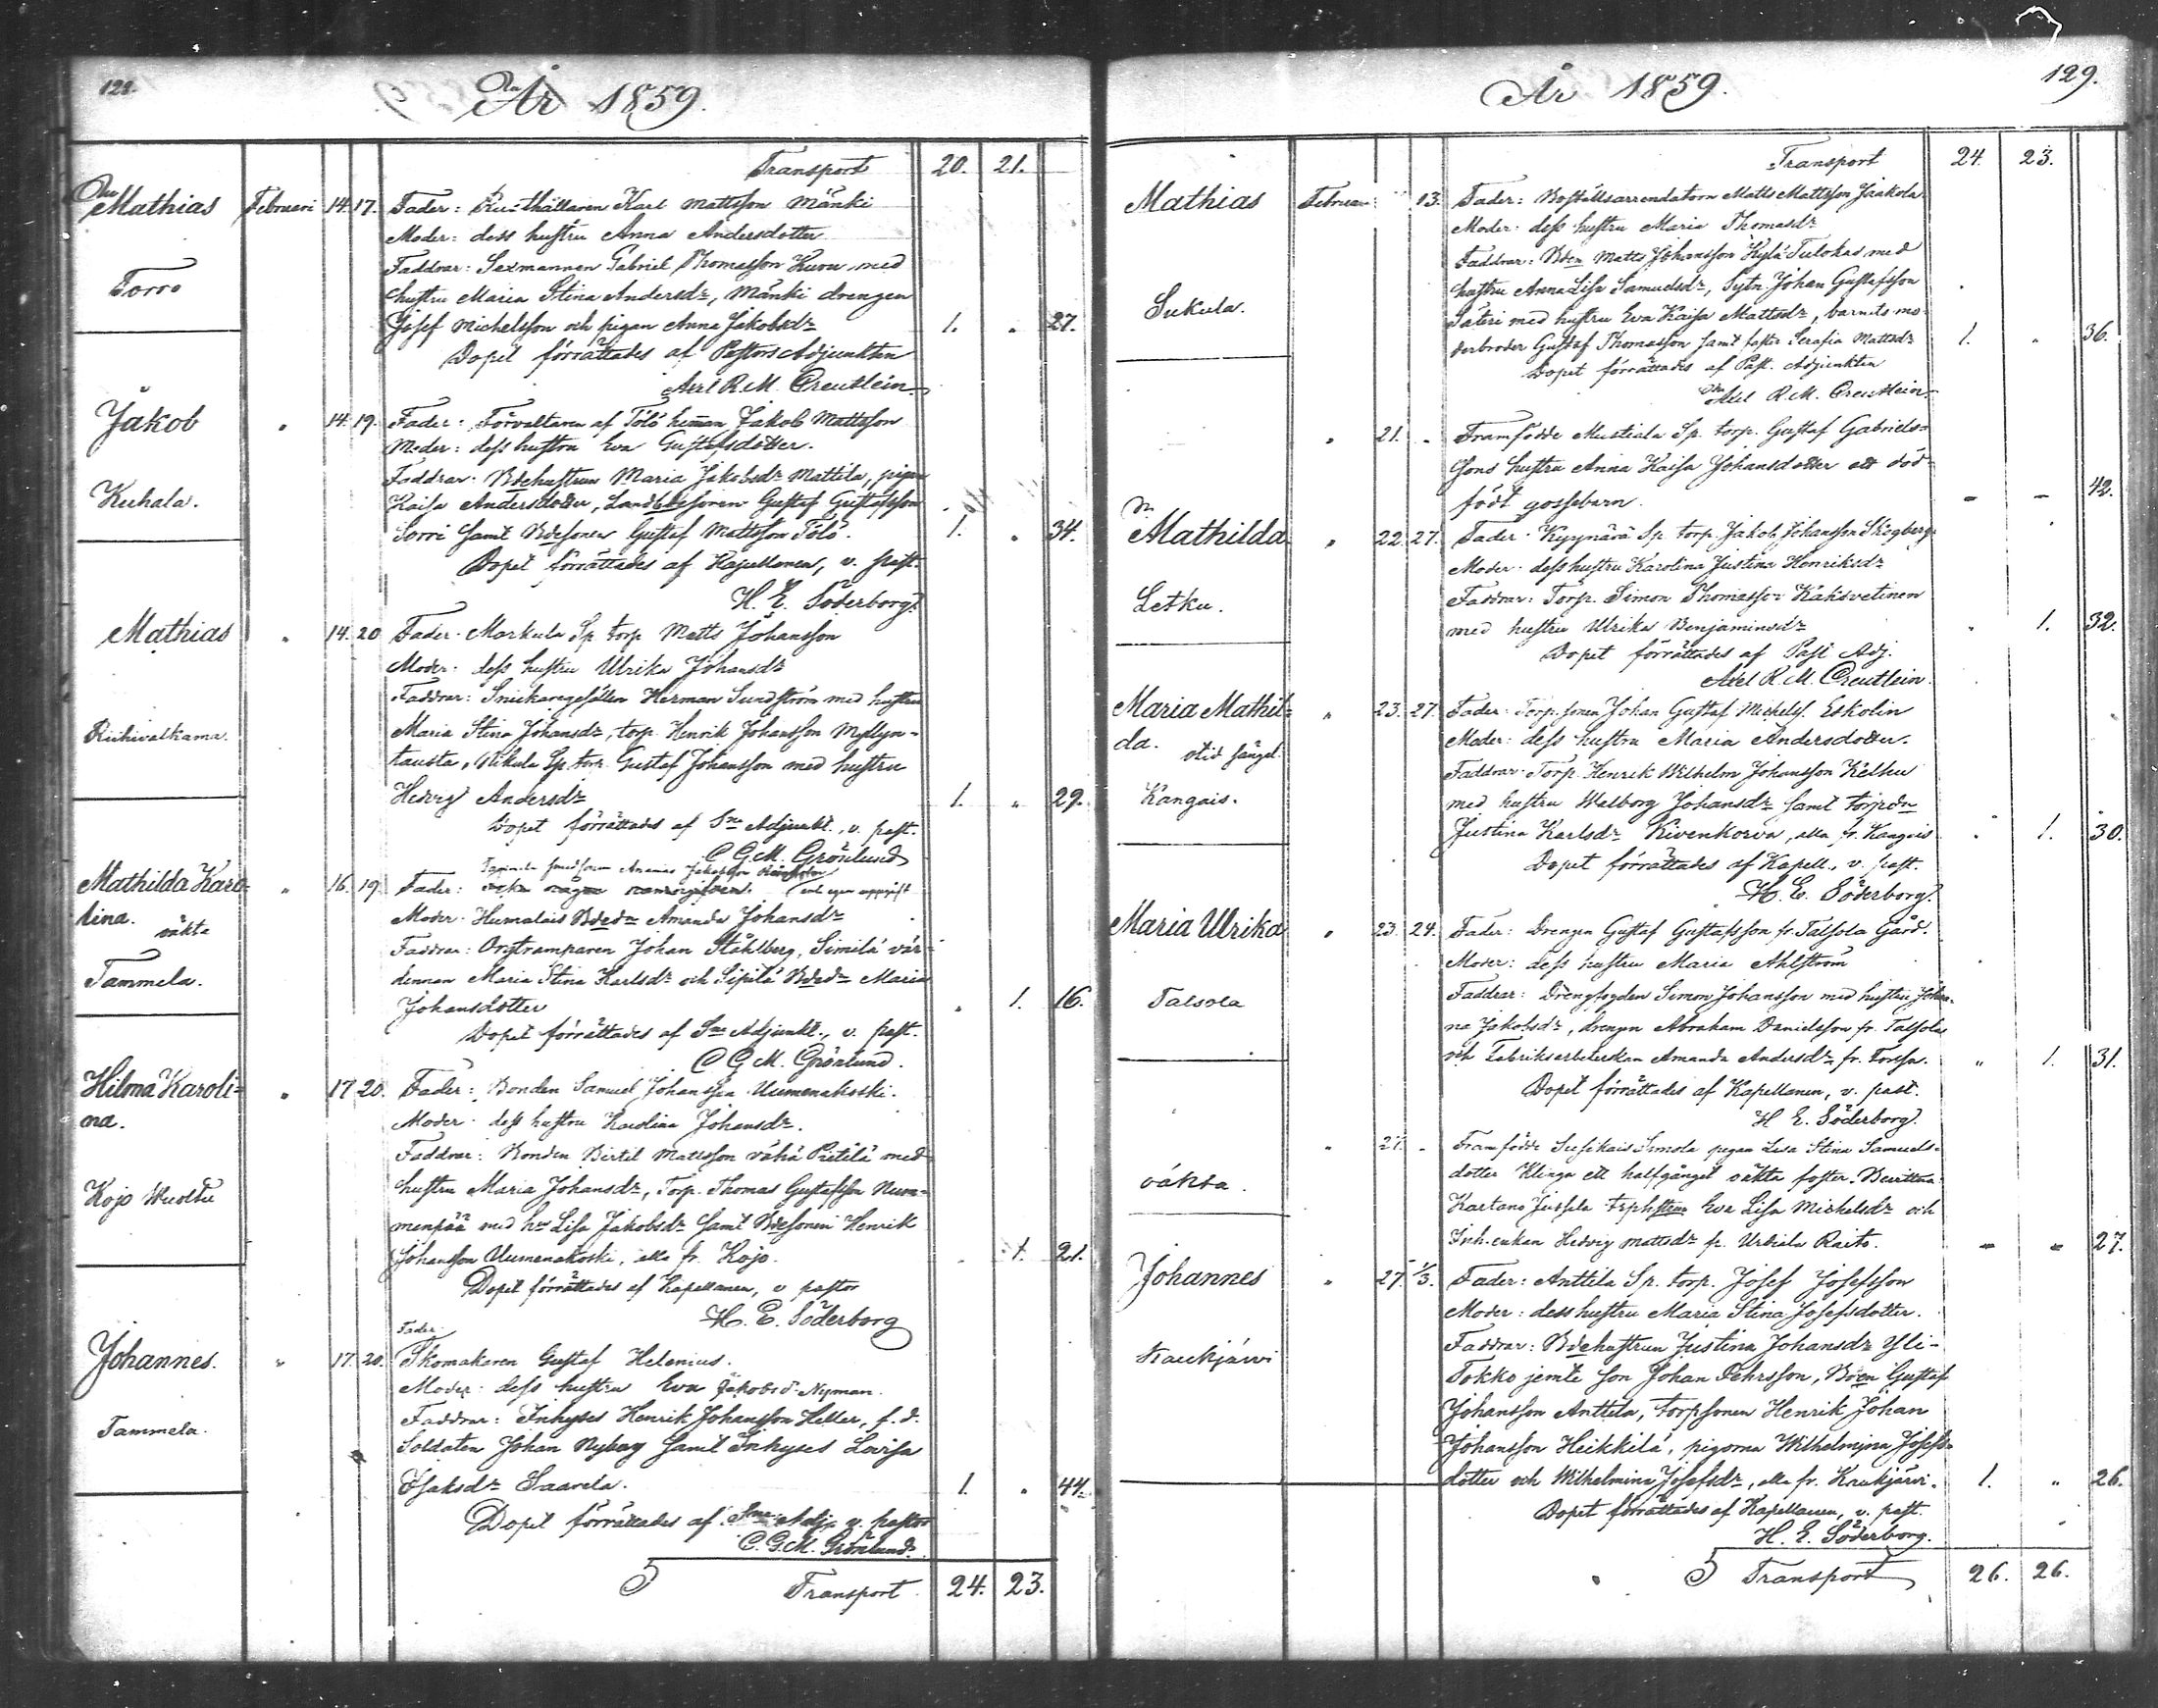 128.
År 1859.
Transport 20. 21.
Mathias Februari 14. 17. Fader: Rusthållaren Karl Mattsson Mänki
Moder: dess hustru Anna Andersdotter
Torro
Faddrar: Sexmannen Gabriel Thomasson Kuou med
hustru Maria Stina Andersdr, Mänki drengen
Josef Michelsson och pigan Anna Jakobsdr 1. " 27.
Dopet förrättades af Pastors Adjunkten
Axel R. M. Creutlein.
Jakob " 14. 19. Fader: Förvaltaren af Tölö heman Jakob Mattsson
Moder: dess hustru Eva Gustafsdotter.
Kuhala.
Faddrar: Bdehustrun Maria Jakobsdr Mattila, pigan
Kaisa Andersdotter, Landbdesonen Gustaf Gustafsson
Sorri samt Bdesonen Gustaf Mattsson Tölö. 1. " 34.
Dopet förrättades af Kapellanen, v. past.
H. E. Söderborg.
Mathias " 14. 20 Fader: Markula Sp torp Matts Johansson
Moder: dess hustru Ulrika Johansdr
Riihivalkama.
Faddrar: Snickaregesällen Herman Sundström med hustru
Maria Stina Johansdr, torp. Henrik Johansson Myllyn-
tausta, Sp. torp. Gustaf Johansson med hustru
Hedvig Andersdr 1. " 29.
Dopet förrättades af Sne Adjunkt., v. past.
C. G. M. Grönlund
Mathilda Karo-
lina. oäkta
Tammela.
" 16. 19. Fader:
enl. egen uppgift
Moder: Humalais Bdedr Amanda Johansdr
Faddrar: Orgtramparen Johan Ståhlberg, Similä vär-
dinnan Maria Stina Karlsdr och Sipilä Bdedr Maria
Johansdotter " 1. 16.
Dopet förrättades af Sne Adjunkt., v. past.
C G M. Grönlund.
Hilma Karoli-
na.
Kojo
" 17 20. Fader: Bonden Samuel Johansson Uumenakoski.
Moder: dess hustru Karolina Johansdr.
Faddrar: Bonden Bertil Mattsson vähä Pietilä med
hustru Maria Johansdr, Torp. Thomas Gustafsson Num-
menpää med hu Lisa Jakobsdr samt Bdesonen Henrik
Johansson Uumenakoski, alla fr. Kojo. " 1. 21.
Dopet förrättades af Kapellanen, v pastor
H. E. Söderborg
Johannes. " 17. 20. Fader
Skomakaren Gustaf Helenius.
Moder: dess hustru Eva Jakobsdr Nyman.
Tammela.
Faddrar: Inhyses Henrik Johansson Heller, f. d.
Soldaten Johan Nyberg samt Inhyses Lovisa
Isaksdr Saarela. 1. " 44.
Dopet förrättades af Sne Adj. v. pastor
C. G. M. Grönlund.
5 Transport 24. 23.
129.
År 1859.
Transport 24. 23.
Mathias Februari 13. Fader: Boställsarrendatorn Matts Mattsson Jaakola
Moder: dess hustru Maria Thomasdr
Sukula.
Faddrar: Bden Matts Johansson Kylä Tulokas med
hustru Anna Lisa Samuelsdr, Sytn. Johan Gustafsson
Säteri med hustru Eva Kaisa Mattsdr, barnets mo-
derbroder Gustaf Thomasson samt faster Serafia Mattsdr 1. " 36.
Dopet förrättades af Past. Adjunkten
Axel R. M. Creutlein.
" 21. " Framfödde Mustiala Sp. torp. Gustaf Gabriels-
sons hustru Anna Kaisa Johansdotter ett död-
födt gossebarn. - - 42.
Mathilda " 22. 27. Fader: Kyynärä Sp. torp. Jakob Johansson Skogberg
Moder: dess hustru Karolina Justina Henriksdr
Letku.
Faddrar: Torp. Simon Thomasson Kaksvetinen
med hustru Ulrika Benjaminsdr " 1. 32.
Dopet förrättades af Past Adj.
Axel R. M. Creutlein.
Maria Mathil-
da.
Kangais.
" 23. 27. Fader: Torp. sonen Johan Gustaf Michelss. Eskolin
Moder: dess hustru Maria Andersdotter.
Faddrar: Torp. Henrik Wilhelm Johansson Kelhu
med hustru Walborg Johansdr samt torpedn
Justina Karlsdr Kivenkorva, alla fr. Kangais " 1. 30.
Dopet förrättades af Kapell., v. past.
H. E. Söderborg.
Maria Ulrika " 23. 24. Fader: Drengen Gustaf Gustafsson fr. Talsola Gård.
Moder: dess hustru Maria Ahlström
Talsola
Faddrar: Drengfogden Simon Johansson med hustru Johan-
na Jakobsdr, drengen Abraham Danielsson fr. Talsola
och Fabriksarbeterskan Amanda Andersdr fr. Forssa. " 1. 31.
Dopet förrättades af Kapellanen, v. past.
H E. Söderborg.
oäkta.
" 27. " Framfödde Susikais Simola pigan Lisa Stina Samuels-
dotter Klinga ett halfgånget oäkta foster.
Kartano Jussila Eva Lisa Michelsdr och
Inh. enkan Hedvig Mattsdr fr. Urdiala Raito. - - 27.
Johannes " 27. 1/3. Fader: Anttila Sp. torp. Josef Josefsson
Moder: dess hustru Maria Stina Josefsdotter.
Kaukjärvi
Faddrar: Bdehustrun Justina Johansdr Yli-
Tokko jemte son Johan Pehrsson, Bden Gustaf
Johansson Anttila, torpsonen Henrik Johan
Johansson Heikkilä, pigorna Wilhelmina Josefs-
dotter och Wilhelmina Josefsdr, alla fr. Kaukjärvi. 1. " 26.
Dopet förrättades af Kapellanen, v. past.
H. E. Söderborg.
5 Transport 26. 26.